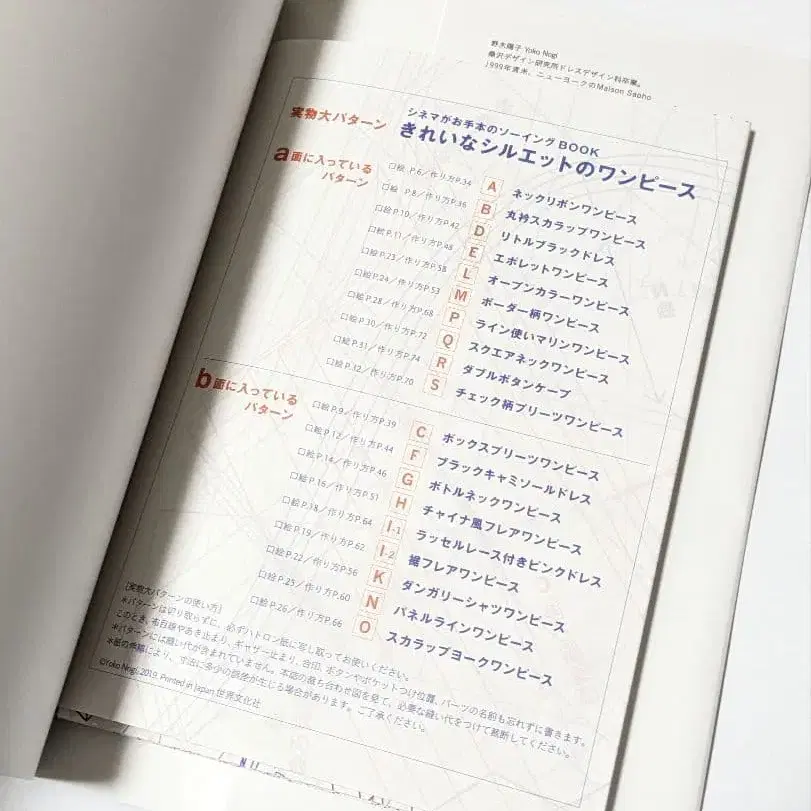 野木陽子 Yoko Nogi
桑沢デザイン研究所ドレスデザイン科卒業。
1999年渡米、ニューヨークのMaison Sapho
実物大パターン
シネマがお手本のソーイングBOOK
きれいなシルエットのワンピース
a面に入っている
パターン
口絵 P.6／作り方P.34 A ネックリボンワンピース
口絵 P.8／作り方P.36 B 丸衿スカラップワンピース
口絵P.10／作り方P.42 D リトルブラックドレス
口絵P.11／作り方P.48 E エポレットワンピース
口絵P.23／作り方P.58 L オープンカラーワンピース
口絵P.24／作り方P.53 M ボーダー柄ワンピース
口絵P.28／作り方P.68 P ライン使いマリンワンピース
口絵P.30／作り方P.72 Q スクエアネックワンピース
口絵P.31／作り方P.74 R ダブルボタンケープ
口絵P.32／作り方P.70 S チェック柄プリーツワンピース
b面に入っている
パターン
口絵P.9／作り方P.39 C ボックスプリーツワンピース
口絵P.12／作り方P.44 F ブラックキャミソールドレス
口絵P.14／作り方P.46 G ボトルネックワンピース
口絵P.16／作り方P.51 H チャイナ風フレアワンピース
口絵P.18／作り方P.64 I-1 ラッセルレース付きピンクドレス
口絵P.19／作り方P.62 I-2 裾フレアワンピース
口絵P.22／作り方P.56 K ダンガリーシャツワンピース
口絵P.25／作り方P.60 N パネルラインワンピース
口絵P.26／作り方P.66 O スカラップヨークワンピース
[実物大パターンの使い方]
＊パターンは切り取らずに、必ずハトロン紙に写し取ってお使いください。
このとき、布目線やあき止まり、ギャザー止まり、合印、ボタンやポケットつけ位置、パーツの名前も忘れずに書きます。
＊パターンには縫い代が含まれていません。本誌の裁ち合わせ図を見て、必要な縫い代をつけて裁断してください。
＊紙の伸縮により、寸法に多少の誤差が生じる場合があります。ご了承ください。
©Yoko Nogi, 2019. Printed in Japan 世界文化社